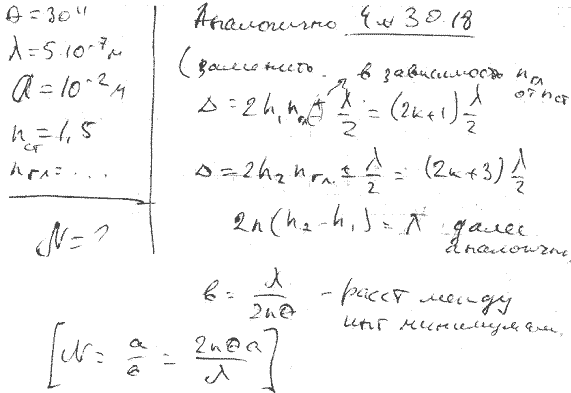 θ = 30"
λ = 5·10⁻⁷ м
a = 10⁻² м
n ст = 1,5
n гл = ...
N = ?
Аналогично 4 м 30.18
(заменить. в зависимость n гл от n ст
Δ = 2h₁n гл ± λ/2 = (2k+1) λ/2
Δ = 2h₂ n гл. ± λ/2 = (2k+3) λ/2
2n(h₂ - h₁) = λ далее
аналогичн.
в = λ/2nθ - расст между
инт минимумам.
[N = a/в = 2nθa/λ]